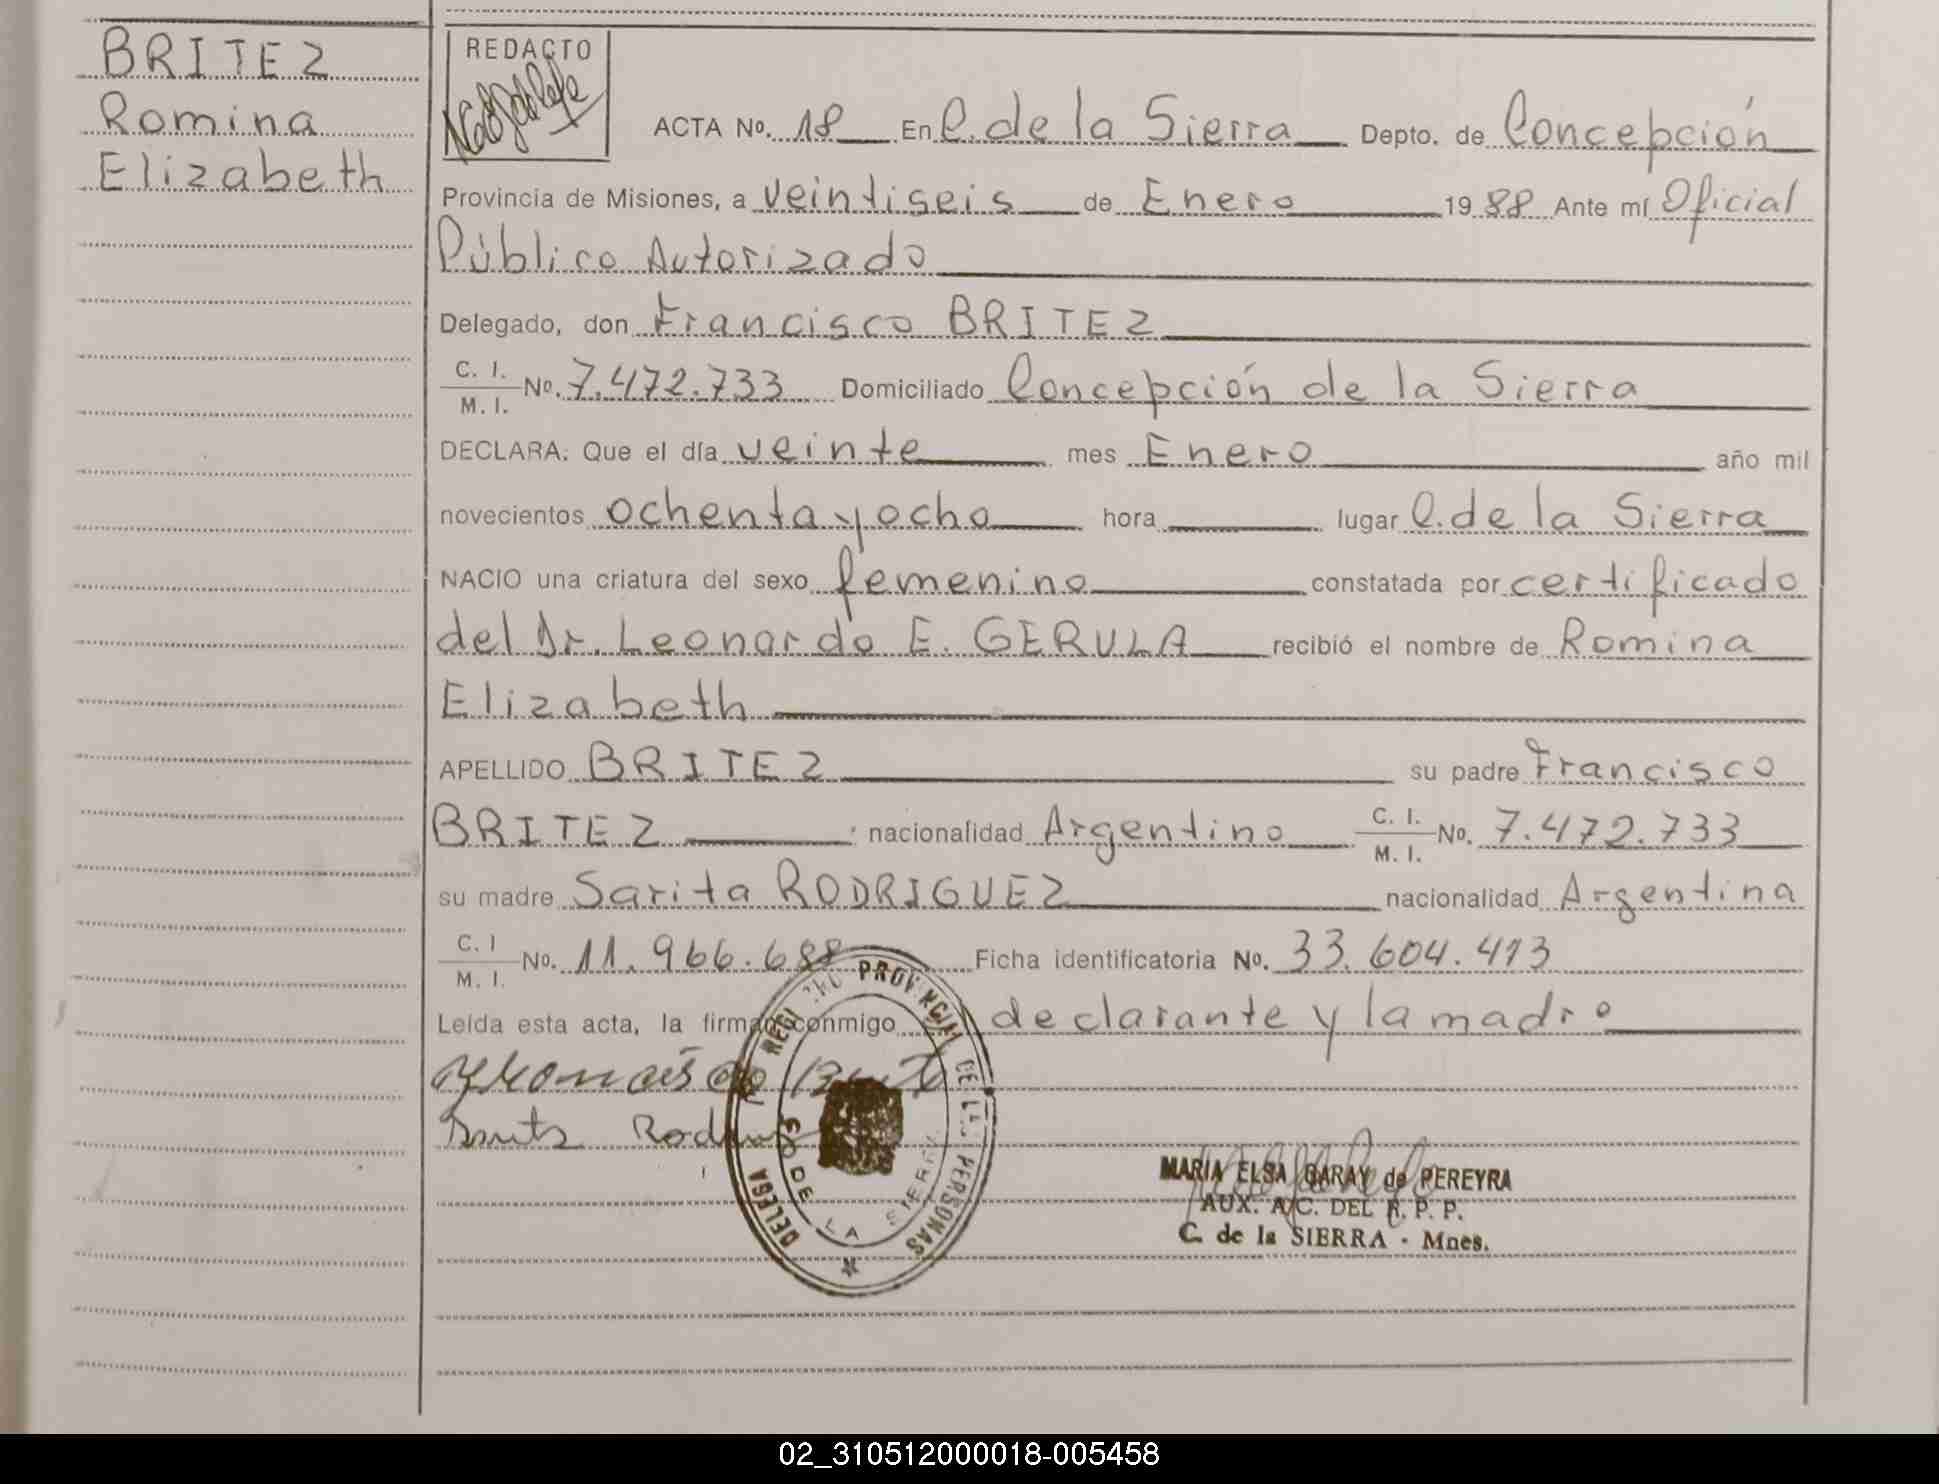 BRITEZ
Romina
Elizabeth
REDACTO
ACTA No. 18 En C. de la Sierra Depto. de Concepción
Provincia de Misiones, a veintiseis de Enero 1988 Ante mí Oficial
Público Autorizado
Delegado, don Francisco BRITEZ
C. I. / M. I. No. 7.472.733 Domiciliado Concepción de la Sierra
DECLARA: Que el día veinte mes Enero año mil
novecientos ochenta y ocho hora lugar C. de la Sierra
NACIO una criatura del sexo femenino constatada por certificado
del Dr. Leonardo E. GERULA recibió el nombre de Romina
Elizabeth
APELLIDO BRITEZ su padre Francisco
BRITEZ nacionalidad Argentino C. I. / M. I. No. 7.472.733
su madre Sarita RODRIGUEZ nacionalidad Argentina
C. I / M. I. No. 11.966.688 Ficha identificatoria No. 33.604.413
Leída esta acta, la firman conmigo declarante y la madre
PROVINCIAL DE LAS PERSONAS
DE LA SIERRA
MARIA ELSA GARAY de PEREYRA
AUX. A/C. DEL R. P. P.
C. de la SIERRA - Mnes.
02_310512000018-005458